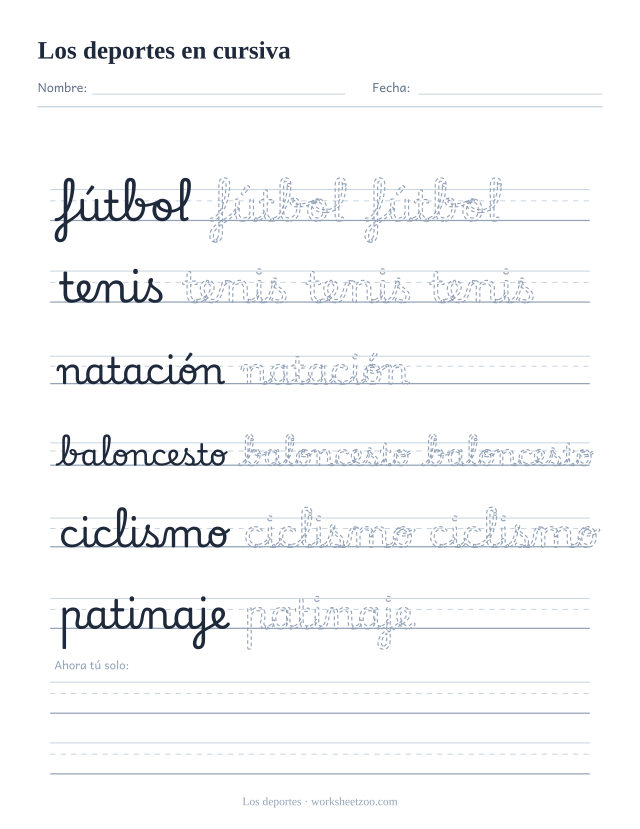 Los deportes en cursiva
Nombre: Fecha:
fútbol fútbol fútbol
tenis tenis tenis tenis
natación natación
baloncesto baloncesto baloncesto
ciclismo ciclismo ciclismo
patinaje patinaje
Ahora tú solo:
Los deportes · worksheetzoo.com